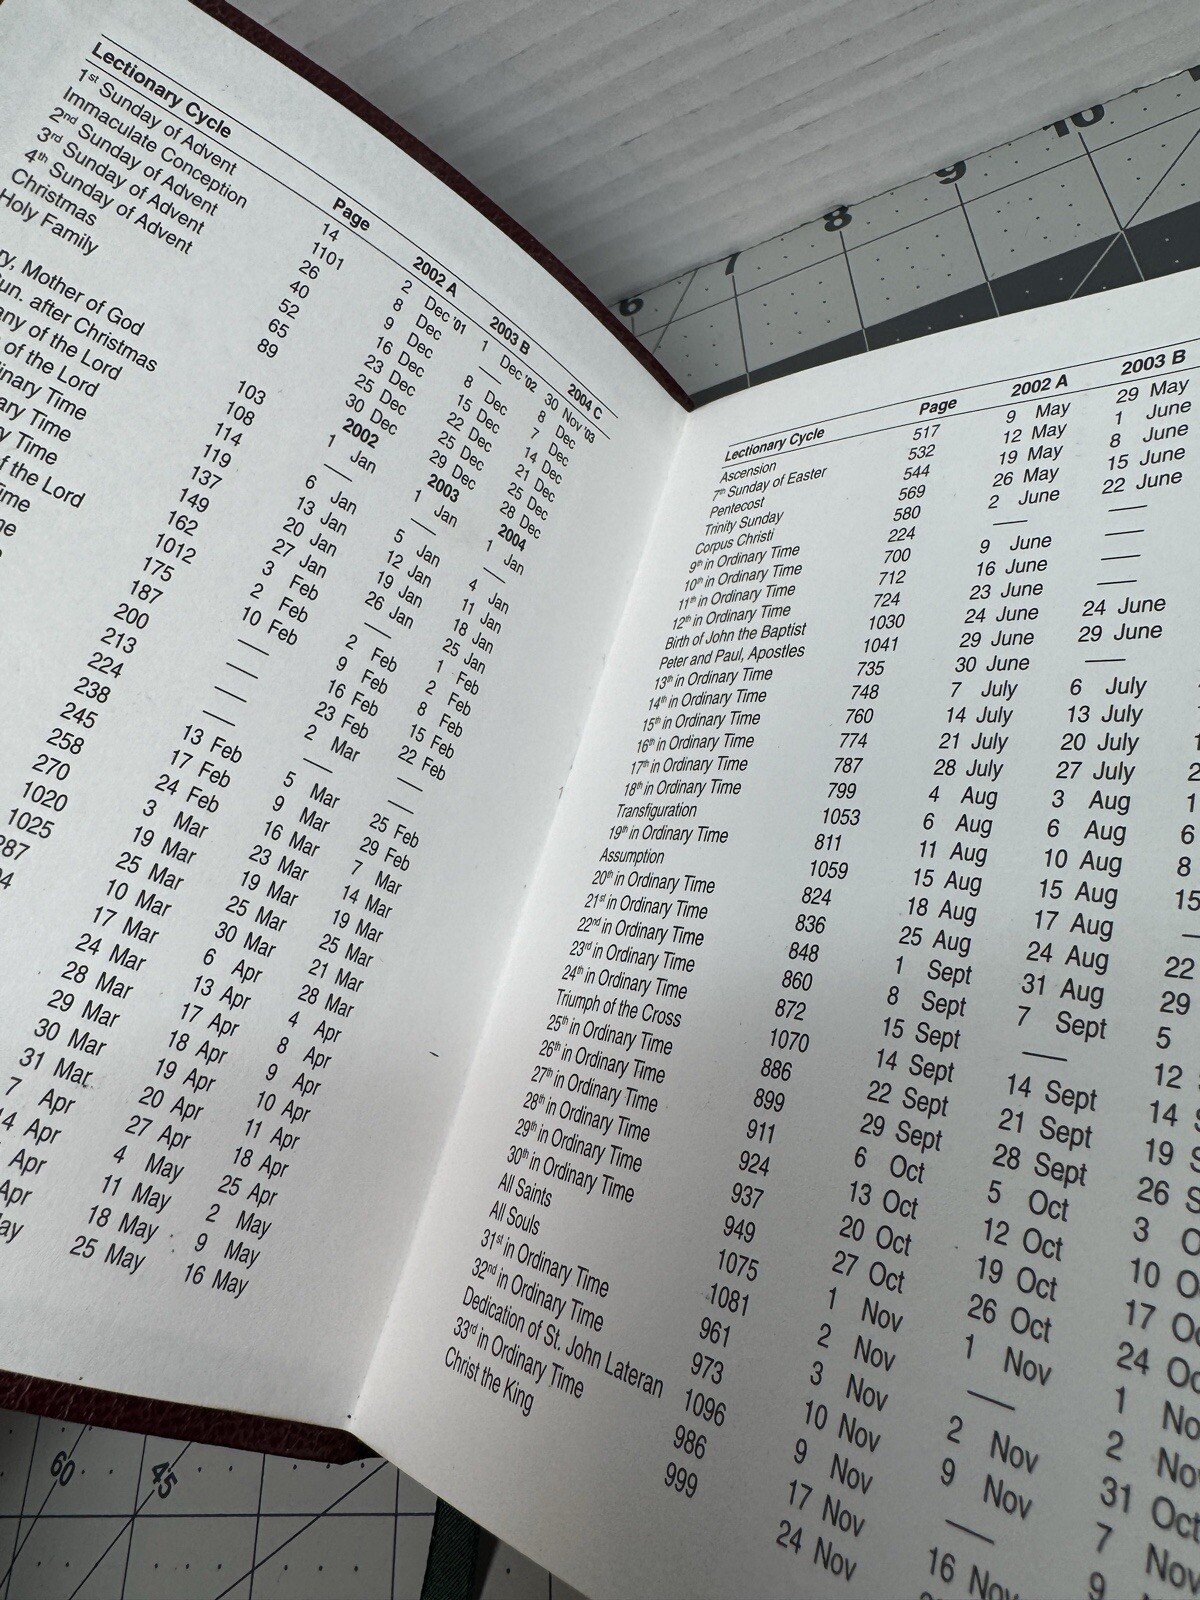 Lectionary Cycle Page 2002 A 2003 B 2004 C
1st Sunday of Advent 14 2 Dec '01 1 Dec '02 30 Nov '03
Immaculate Conception 1101 8 Dec — 8 Dec
2nd Sunday of Advent 26 9 Dec 8 Dec 7 Dec
3rd Sunday of Advent 40 16 Dec 15 Dec 14 Dec
4th Sunday of Advent 52 23 Dec 22 Dec 21 Dec
Christmas 65 25 Dec 25 Dec 25 Dec
Holy Family 89 30 Dec 29 Dec 28 Dec
2002 2003 2004
Mother of God 103 1 Jan 1 Jan 1 Jan
after Christmas 108 — — —
of the Lord 114 6 Jan 5 Jan 4 Jan
of the Lord 119 13 Jan 12 Jan 11 Jan
Time 137 20 Jan 19 Jan 18 Jan
Time 149 27 Jan 26 Jan 25 Jan
Time 162 3 Feb — 1 Feb
of the Lord 1012 2 Feb 2 Feb 2 Feb
175 10 Feb 9 Feb 8 Feb
187 — 16 Feb 15 Feb
200 — 23 Feb 22 Feb
213 — 2 Mar —
224 — — —
238 13 Feb 5 Mar 25 Feb
245 17 Feb 9 Mar 29 Feb
258 24 Feb 16 Mar 7 Mar
270 3 Mar 23 Mar 14 Mar
1020 19 Mar 19 Mar 19 Mar
1025 25 Mar 25 Mar 25 Mar
287 10 Mar 30 Mar 21 Mar
17 Mar 6 Apr 28 Mar
24 Mar 13 Apr 4 Apr
28 Mar 17 Apr 8 Apr
29 Mar 18 Apr 9 Apr
30 Mar 19 Apr 10 Apr
31 Mar 20 Apr 11 Apr
7 Apr 27 Apr 18 Apr
Apr 4 May 25 Apr
Apr 11 May 2 May
Apr 18 May 9 May
25 May 16 May
Lectionary Cycle Page 2002 A 2003 B
Ascension 517 9 May 29 May
7th Sunday of Easter 532 12 May 1 June
Pentecost 544 19 May 8 June
Trinity Sunday 569 26 May 15 June
Corpus Christi 580 2 June 22 June
9th in Ordinary Time 224 — —
10th in Ordinary Time 700 9 June —
11th in Ordinary Time 712 16 June —
12th in Ordinary Time 724 23 June —
Birth of John the Baptist 1030 24 June 24 June
Peter and Paul, Apostles 1041 29 June 29 June
13th in Ordinary Time 735 30 June —
14th in Ordinary Time 748 7 July 6 July
15th in Ordinary Time 760 14 July 13 July
16th in Ordinary Time 774 21 July 20 July
17th in Ordinary Time 787 28 July 27 July
18th in Ordinary Time 799 4 Aug 3 Aug 1
Transfiguration 1053 6 Aug 6 Aug 6
19th in Ordinary Time 811 11 Aug 10 Aug 8
Assumption 1059 15 Aug 15 Aug 15
20th in Ordinary Time 824 18 Aug 17 Aug —
21st in Ordinary Time 836 25 Aug 24 Aug 22
22nd in Ordinary Time 848 1 Sept 31 Aug 29
23rd in Ordinary Time 860 8 Sept 7 Sept 5
24th in Ordinary Time 872 15 Sept — 12
Triumph of the Cross 1070 14 Sept 14 Sept 14
25th in Ordinary Time 886 22 Sept 21 Sept 19
26th in Ordinary Time 899 29 Sept 28 Sept 26
27th in Ordinary Time 911 6 Oct 5 Oct 3
28th in Ordinary Time 924 13 Oct 12 Oct 10
29th in Ordinary Time 937 20 Oct 19 Oct 17
30th in Ordinary Time 949 27 Oct 26 Oct 24
All Saints 1075 1 Nov 1 Nov 1
All Souls 1081 2 Nov — 2
31st in Ordinary Time 961 3 Nov 2 Nov 31 Oct
32nd in Ordinary Time 973 10 Nov 9 Nov 7 Nov
Dedication of St. John Lateran 1096 9 Nov — 9
33rd in Ordinary Time 986 17 Nov 16 Nov
Christ the King 999 24 Nov
6 7 8 9 10
60 45